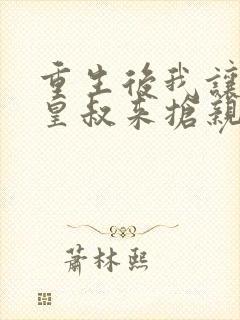 重生後我讓
皇叔來搶親
蕭林熙